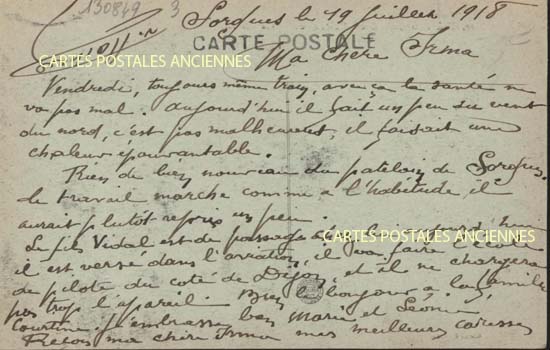 130849 3
Sorgues le 19 Juillet 1918
CARTE POSTALE
CARTES POSTALES ANCIENNES
Ma chère Irma
Vendredi, toujours même train, avec ça la santé ne
va pas mal. Aujourd'hui il fait un peu du vent
du nord, c'est pas malheureux, il faisait une
chaleur épouvantable.
Rien de bien nouveau du patelin de Sorgues,
le travail marche comme à l'habitude, il
aurait plutôt repris un peu.
Le fils Vidal est de passage
CARTES POSTALES ANCIENNES
il est versé dans l'aviation, il va faire
de pilote du coté de Dijon, et il ne chargera
pas trop l'appareil. Bien le bonjour à la famille
Courtine. J'embrasse bien Marie et Léonie
Reçois ma chère Irma mes meilleurs caresses